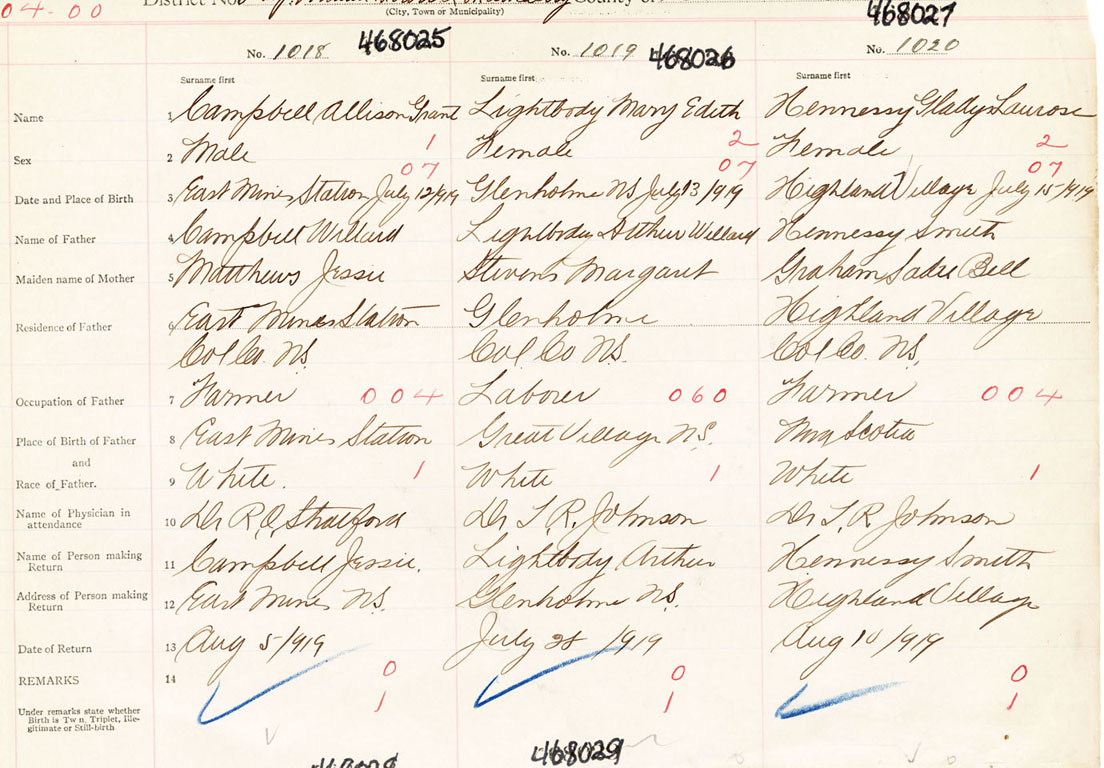 04-00
District No. County of
(City, Town or Municipality)
No. 1018 468025 No. 1019 468026 No. 1020 468027
Surname first Surname first Surname first
Name 1 Campbell Allison Grant Lightbody Mary Edith Hennessy Gladys Laurose
Sex 2 Male 1 Female 2 Female 2
07 07 07
Date and Place of Birth 3 East Mines Station July 12/1919 Glenholme NS July 13/1919 Highland Village July 15/1919
Name of Father 4 Campbell Willard Lightbody Arthur Willard Hennessy Smith
Maiden name of Mother 5 Matthews Jessie Stevens Margaret Graham Sadie Bell
Residence of Father 6 East Mines Station Glenholme Highland Village
Col Co. NS. Col Co NS. Col Co. NS.
Occupation of Father 7 Farmer 004 Laborer 060 Farmer 004
Place of Birth of Father 8 East Mines Station Great Village NS. Nova Scotia
and
Race of Father. 9 White. 1 White 1 White 1
Name of Physician in
attendance 10 Dr R. Q. Stratford Dr T. R. Johnson Dr T. R. Johnson
Name of Person making
Return 11 Campbell Jessie. Lightbody Arthur Hennessy Smith
Address of Person making
Return 12 East Mines NS. Glenholme NS. Highland Village
Date of Return 13 Aug 5/1919 July 28/1919 Aug 10/1919
REMARKS 14 0 0 0
Under remarks state whether
Birth is Twin, Triplet, Ille-
gitimate or Still-birth. 1 1 1
468028 468029